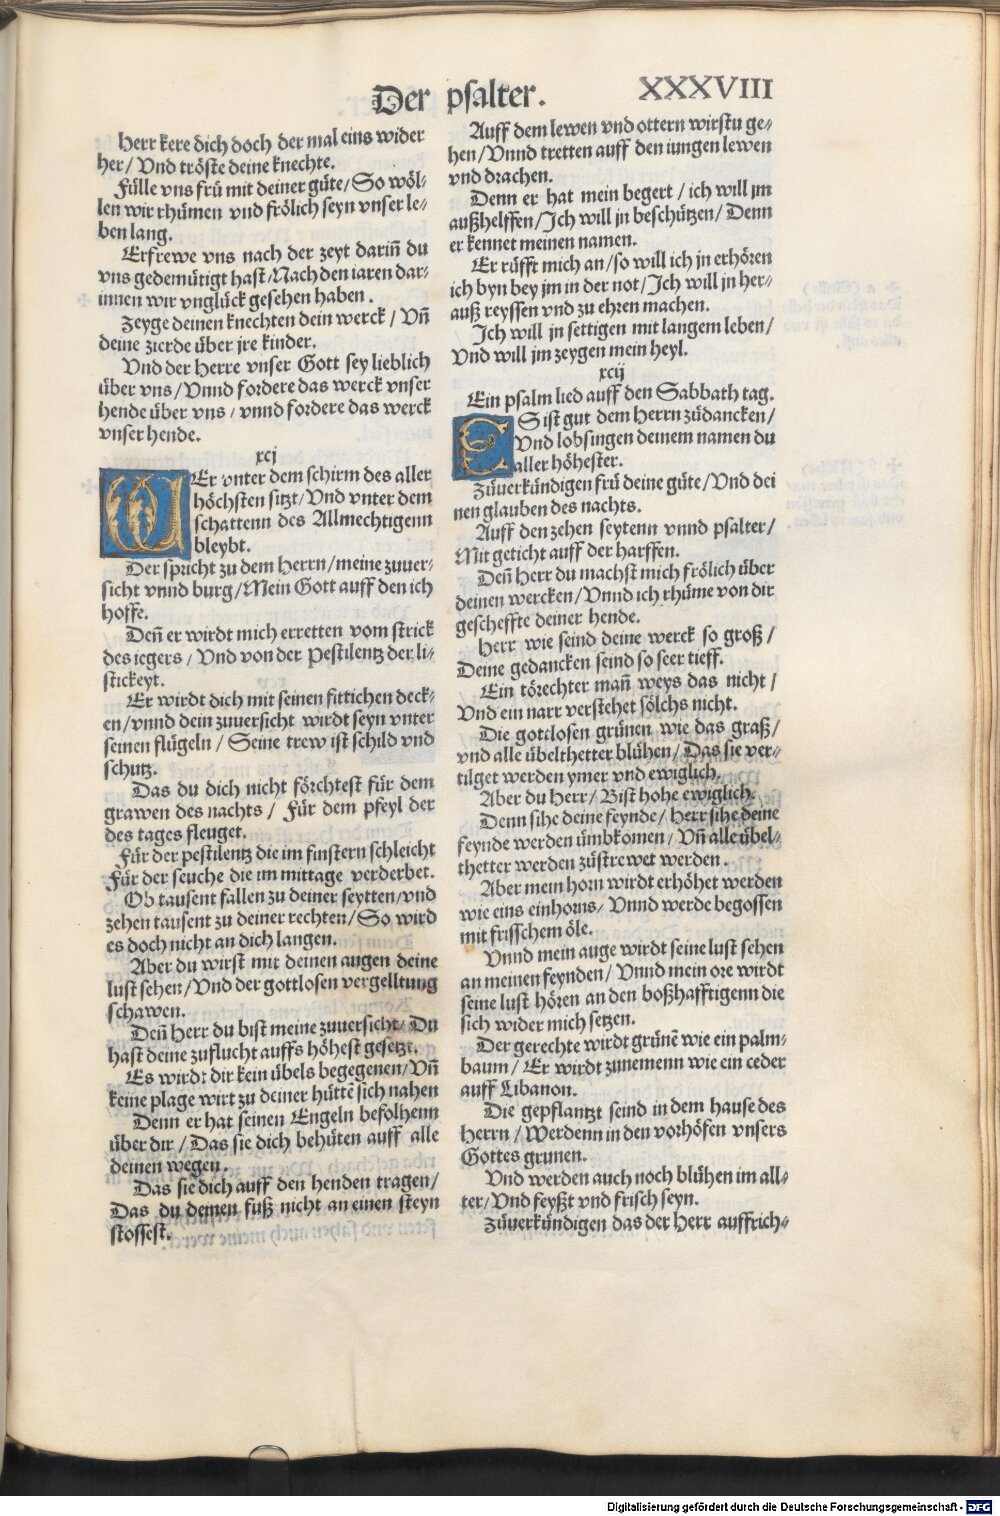 Der psalter. XXXVIII
Herr kere dich doch der mal eins wider
her/ Vnd tröste deine knechte.
Fülle vns frü mit deiner güte/ So wöl-
len wir rhümen vnd frölich seyn vnser le-
ben lang.
Erfrewe vns nach der zeyt dariñ du
vns gedemütigt hast/ Nach den iaren dar-
innen wir vnglück gesehen haben.
Zeyge deinen knechten dein werck/ Vñ
deine zierde über jre kinder.
Vnd der Herre vnser Gott sey lieblich
über vns/ Vnnd fordere das werck vnser
hende über vns/ vnnd fordere das werck
vnser hende.
xcj
WEr vnter dem schirm des aller
höchsten sitzt/ Vnd vnter dem
schattenn des Allmechtigenn
bleybt.
Der spricht zu dem Herrn/ meine zuuer-
sicht vnnd burg/ Mein Gott auff den ich
hoffe.
Deñ er wirdt mich erretten vom strick
des iegers/ Vnd von der Pestilentz der li-
stickeyt.
Er wirdt dich mit seinen fittichen deck-
en/ vnnd dein zuuersicht wirdt seyn vnter
seinen flügeln/ Seine trew ist schild vnd
schutz.
Das du dich nicht förchtest für dem
grawen des nachts/ Für dem pfeyl der
des tages fleuget.
Für der pestilentz die im finstern schleicht
Für der seuche die im mittage verderbet.
Ob tausent fallen zu deiner seytten/ vnd
zehen tausent zu deiner rechten/ So wird
es doch nicht an dich langen.
Aber du wirst mit deinen augen deine
lust sehen/ Vnd der gottlosen vergelltung
schawen.
Deñ Herr du bist meine zuuersicht/ Du
hast deine zuflucht auffs höhest gesetzt.
Es wirdt dir kein übels begegenen/ Vñ
keine plage wirt zu deiner hüttē sich nahen
Denn er hat seinen Engeln befolhenn
über dir/ Das sie dich behüten auff alle
deinen wegen.
Das sie dich auff den henden tragen/
Das du deinen fuß nicht an einen steyn
stossest.
Auff dem lewen vnd ottern wirstu ge-
hen/ Vnnd tretten auff den iungen lewen
vnd drachen.
Denn er hat mein begert/ ich will jm
außhelffen/ Ich will jn beschützen/ Denn
er kennet meinen namen.
Er rüfft mich an/ so will ich jn erhören
ich byn bey jm in der not/ Ich will jn her-
auß reyssen vnd zu ehren machen.
Ich will jn settigen mit langem leben/
Vnd will jm zeygen mein heyl.
xcij
Ein psalm lied auff den Sabbath tag.
ES ist gut dem Herrn zůdancken/
Vnd lobsingen deinem namen du
aller höhester.
Zůuerkündigen frü deine güte/ Vnd dei
nen glauben des nachts.
Auff den zehen seytenn vnnd psalter/
Mit geticht auff der harffen.
Deñ Herr du machst mich frölich über
deinen wercken/ Vnnd ich rhüme von dir
gescheffte deiner hende.
Herr wie seind deine werck so groß/
Deine gedancken seind so seer tieff.
Ein törechter mañ weys das nicht/
Vnd ein narr verstehet sölchs nicht.
Die gottlosen grünen wie das graß/
vnd alle übelthetter blühen/ Das sie ver-
tilget werden ymer vnd ewiglich.
Aber du Herr/ Bist hohe ewiglich.
Denn sihe deine feynde/ Herr sihe deine
feynde werden ümbkomen/ Vñ alle übel-
thetter werden züstrewet werden.
Aber mein horn wirdt erhöhet werden
wie eins einhorns/ Vnnd werde begossen
mit frisschem öle.
Vnnd mein auge wirdt seine lust sehen
an meinen feynden/ Vnnd mein ore wirdt
seine lust hören an den boßhafftigenn die
sich wider mich setzen.
Der gerechte wirdt grünē wie ein palm-
baum/ Er wirdt zunemenn wie ein ceder
auff Libanon.
Die gepflantzt seind in dem hause des
Herrn/ Werdenn in den vorhöfen vnsers
Gottes grunen.
Vnd werden auch noch blühen im all-
ter/ Vnd feyßt vnd frisch seyn.
Zůuerkündigen das der Herr auffrich-
Digitalisierung gefördert durch die Deutsche Forschungsgemeinschaft - DFG